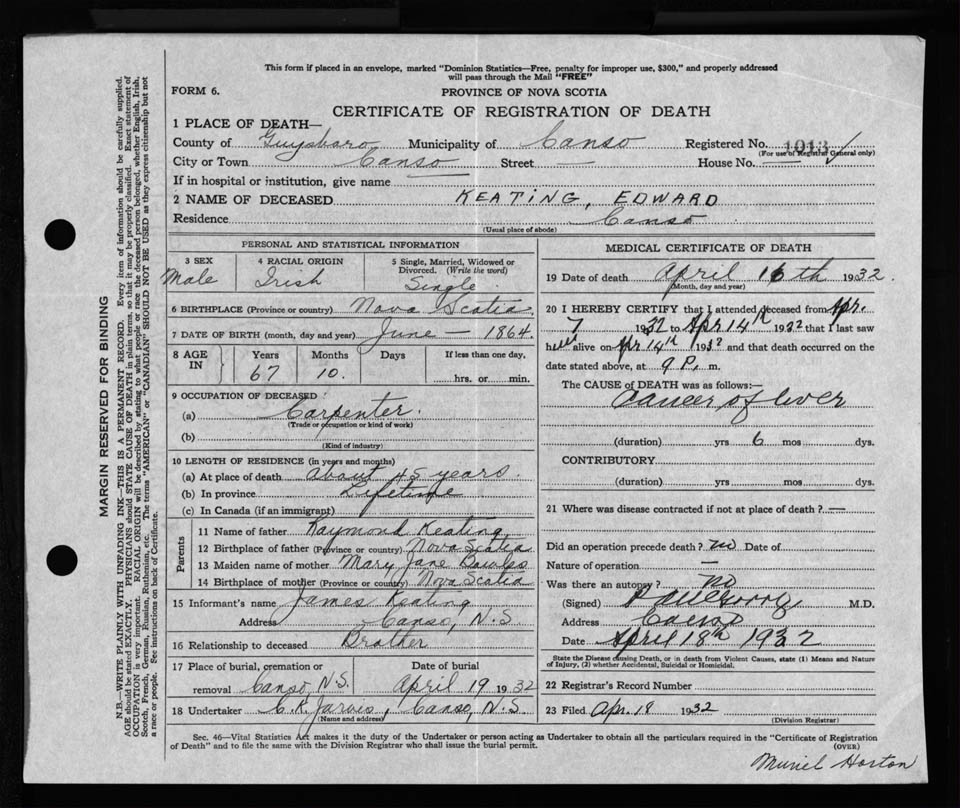 This form if placed in an envelope, marked "Dominion Statistics—Free, penalty for improper use, $300," and properly addressed
will pass through the Mail "FREE"
FORM 6.
PROVINCE OF NOVA SCOTIA
CERTIFICATE OF REGISTRATION OF DEATH
1 PLACE OF DEATH—
County of Guysboro Municipality of Canso Registered No. 1013
(For use of Registrar General only)
City or Town Canso Street — House No. —
If in hospital or institution, give name
2 NAME OF DECEASED KEATING, EDWARD
Residence Canso
(Usual place of abode)
PERSONAL AND STATISTICAL INFORMATION
3 SEX 4 RACIAL ORIGIN 5 Single, Married, Widowed or
Divorced. (Write the word)
Male Irish Single
6 BIRTHPLACE (Province or country) Nova Scotia
7 DATE OF BIRTH (month, day and year) June — 1864
8 AGE IN Years Months Days If less than one day,
67 10. hrs. or min.
9 OCCUPATION OF DECEASED
(a) Carpenter
(Trade or occupation or kind of work)
(b)
(Kind of industry)
10 LENGTH OF RESIDENCE (in years and months)
(a) At place of death about 45 years
(b) In province Lifetime
(c) In Canada (if an immigrant)
Parents
11 Name of father Raymond Keating
12 Birthplace of father (Province or country) Nova Scotia
13 Maiden name of mother Mary Jane
14 Birthplace of mother (Province or country) Nova Scotia
15 Informant's name James Keating
Address Canso, N.S.
16 Relationship to deceased Brother
17 Place of burial, cremation or Date of burial
removal Canso N.S. April 19 1932
18 Undertaker C.R. Jarvis, Canso, N.S.
(Name and address)
MEDICAL CERTIFICATE OF DEATH
19 Date of death April 16th 1932.
(Month, day and year)
20 I HEREBY CERTIFY that I attended deceased from Apr.
7 1932 to Apr 14th 1932 that I last saw
him alive on Apr 14th 1932 and that death occurred on the
date stated above, at 9 P. m.
The CAUSE OF DEATH was as follows:—
Cancer of liver
(duration) yrs 6 mos dys.
CONTRIBUTORY
(duration) yrs mos dys.
21 Where was disease contracted if not at place of death? —
Did an operation precede death? no Date of
Nature of operation —
Was there an autopsy? no
(Signed) M.D.
Address Canso
Date April 18th 1932
State the Disease causing Death, or in death from Violent Causes, state (1) Means and Nature
of Injury, (2) whether Accidental, Suicidal or Homicidal.
22 Registrar's Record Number
23 Filed Apr. 18 1932
(Division Registrar)
Sec. 46—Vital Statistics Act makes it the duty of the Undertaker or person acting as Undertaker to obtain all the particulars required in the "Certificate of Registration
of Death" and to file the same with the Division Registrar who shall issue the burial permit.
(OVER)
Muriel Horton
MARGIN RESERVED FOR BINDING
N.B.—WRITE PLAINLY WITH UNFADING INK—THIS IS A PERMANENT RECORD. Every item of information should be carefully supplied.
AGE should be stated EXACTLY. PHYSICIANS should STATE CAUSE OF DEATH in plain terms, so that it may be properly classified. Exact statement of
OCCUPATION is very important. RACIAL ORIGIN will be described by stating to what people or race the deceased person belonged, whether English, Irish,
Scotch, French, German, Russian, Ruthenian, etc. The terms "AMERICAN" or "CANADIAN" SHOULD NOT BE USED as they express citizenship but not
a race or people. See instructions on back of Certificate.